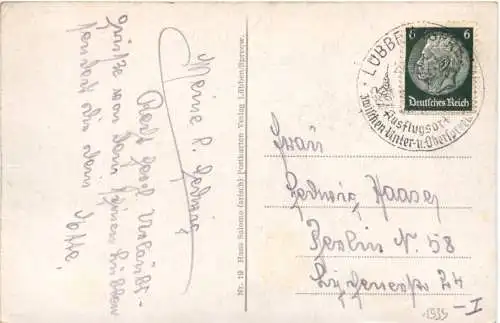 Meine l. Hedwig
Recht herzl. Urlaubs-
grüße von dem schönen Lübben
sendet dir dein
Nr. 19 Hans Salomo (arisch) Postkarten-Verlag Lübben/Spreew.
LÜBBEN
Ausflugsort
zwischen Unter- u. Oberspreewald
6 6
Deutsches Reich
Frau
Hedwig Haase
Berlin N. 58
Lychenerstr 24
I